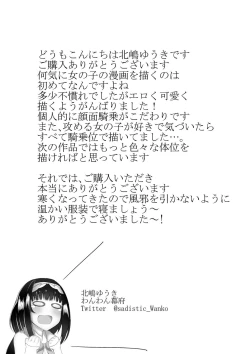 どうもこんにちは北嶋ゆうきです
ご購入ありがとうございます
何気に女の子の漫画を描くのは
初めてなんですよね
多少不慣れでしたがエロく可愛く
描くようがんばりました！
個人的に顔面騎乗がこだわりです
また、攻める女の子が好きで気づいたら
すべて騎乗位で描いてました…。
次の作品ではもっと色々な体位を
描ければと思っています
それでは、ご購入いただき
本当にありがとうございます！
寒くなってきたので風邪を引かないように
温かい服装で寝ましょう～
ありがとうございましたー！
北嶋ゆうき
わんわん幕府
Twitter @sadistic_Wanko